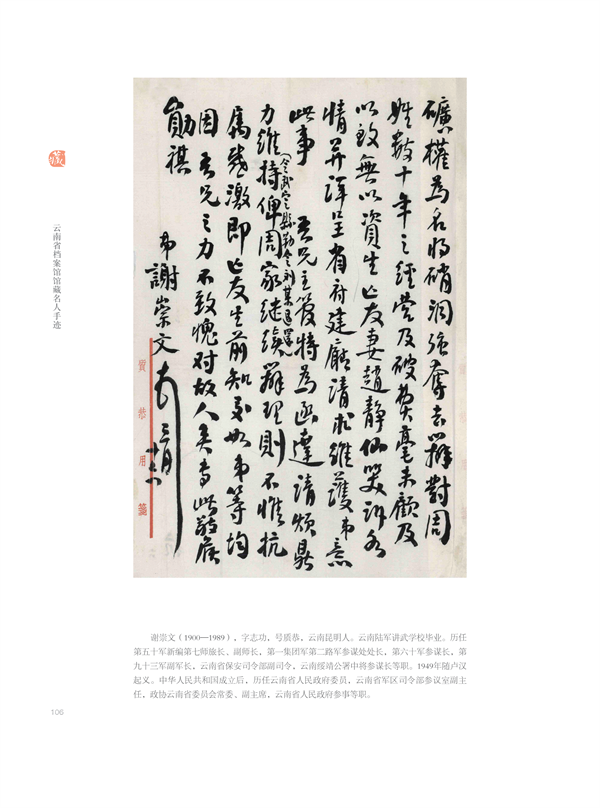 礦權為名將硝洞強奪去辦對周
姓數十年之經營及破費毫未顧及
以致無以資生亡友妻趙靜仙哭訴各
情并詳呈省府建廳請求維護弟意
此事 吾兄主管特為函達請煩鼎
力維持(令武定縣勒令刘某退還)俾周家繼續辦理則不惟抗
属感激即亡友生前知交如弟等均
因吾兄之力不致愧对故人矣專此敬候
勛祺
弟謝崇文
三月
質恭用箋
藏
云南省档案馆馆藏名人手迹
谢崇文（1900—1989），字志功，号质恭，云南昆明人。云南陆军讲武学校毕业。历任
第五十军新编第七师旅长、副师长，第一集团军第二路军参谋处处长，第六十军参谋长，第
九十三军副军长，云南省保安司令部副司令，云南绥靖公署中将参谋长等职。1949年随卢汉
起义。中华人民共和国成立后，历任云南省人民政府委员，云南省军区司令部参议室副主
任，政协云南省委员会常委、副主席，云南省人民政府参事等职。
106